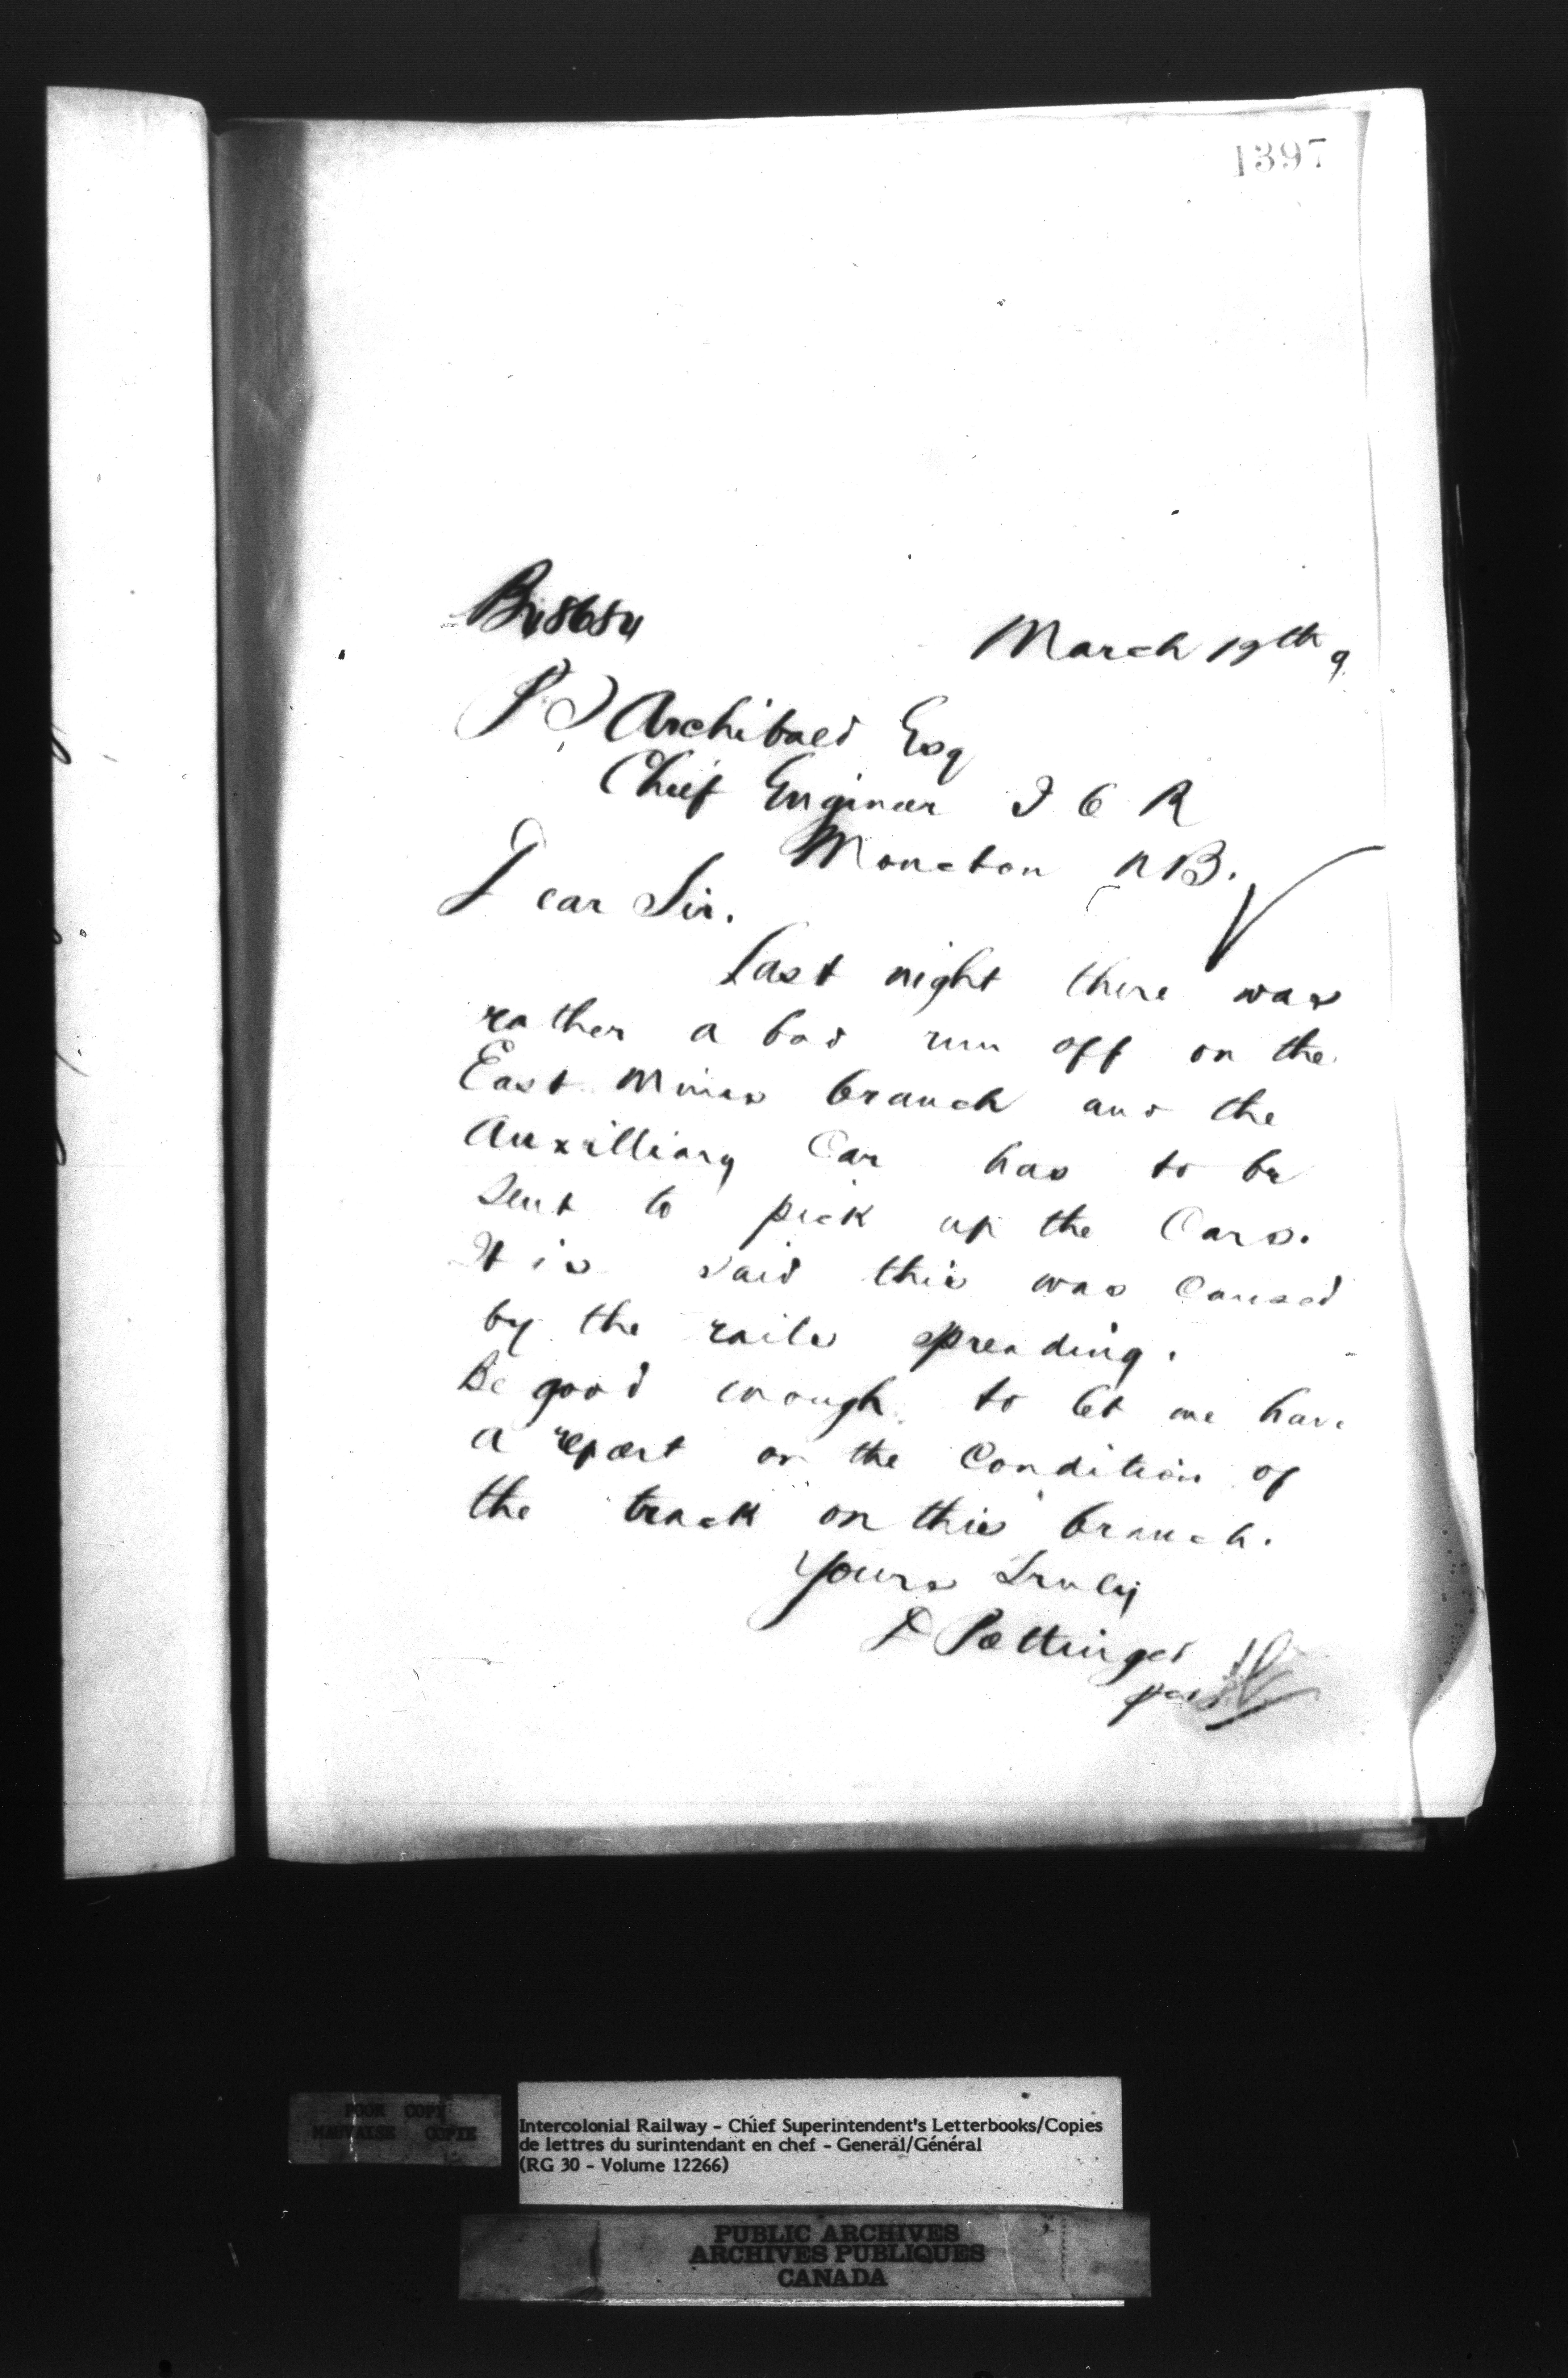 1397
B48684
March 19th 9
P S Archibald Esq
Chief Engineer I C R
Moncton NB.
Dear Sir.
Last night there was
rather a bad run off on the
East Mines branch and the
Auxilliary Car has to be
sent to pick up the Cars.
It is said this was Caused
by the rails spreading.
Be good enough to let me have
a report on the Condition of
the track on this branch.
Yours Truly
D Pottinger
per
POOR COPY
MAUVAISE COPIE
Intercolonial Railway - Chief Superintendent's Letterbooks/Copies
de lettres du surintendant en chef - General/Général
(RG 30 - Volume 12266)
PUBLIC ARCHIVES
ARCHIVES PUBLIQUES
CANADA